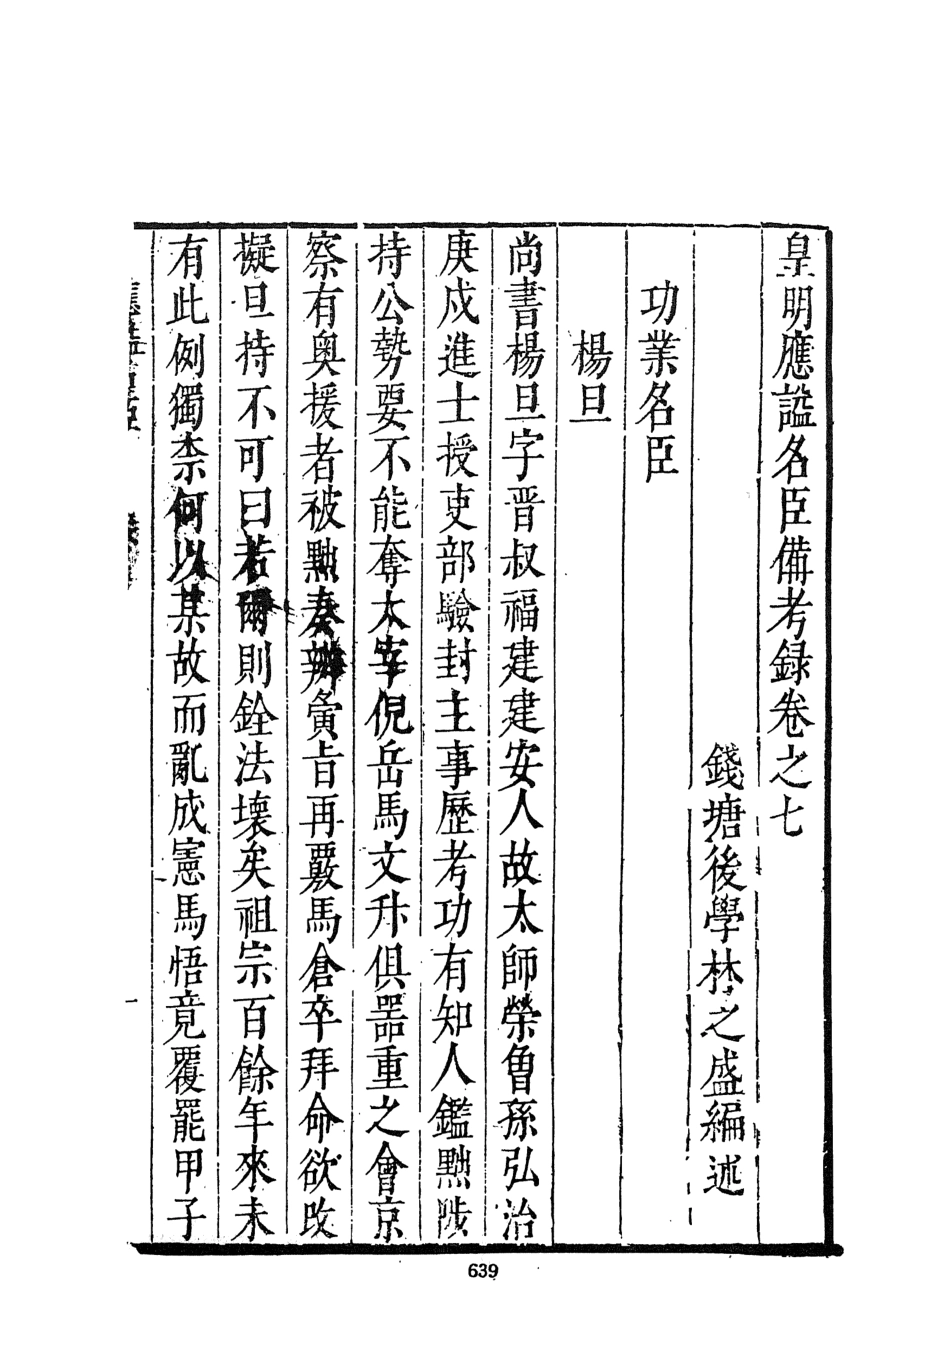 皇明應謚名臣備考録卷之七
錢塘後學林之盛編述
功業名臣
楊旦
尚書楊旦字晋叔福建建安人故太師榮曾孫弘治
庚戌進士授吏部驗封主事歷考功有知人鑑黜陟
持公勢要不能奪太宰倪岳馬文升俱噐重之會京
察有奥援者被黜奏辨夤旨再覈馬倉卒拜命欲改
擬旦持不可曰若爾則銓法壊矣祖宗百餘年來未
有此例獨柰何以某故而亂成憲馬悟竟覆罷甲子
一
639